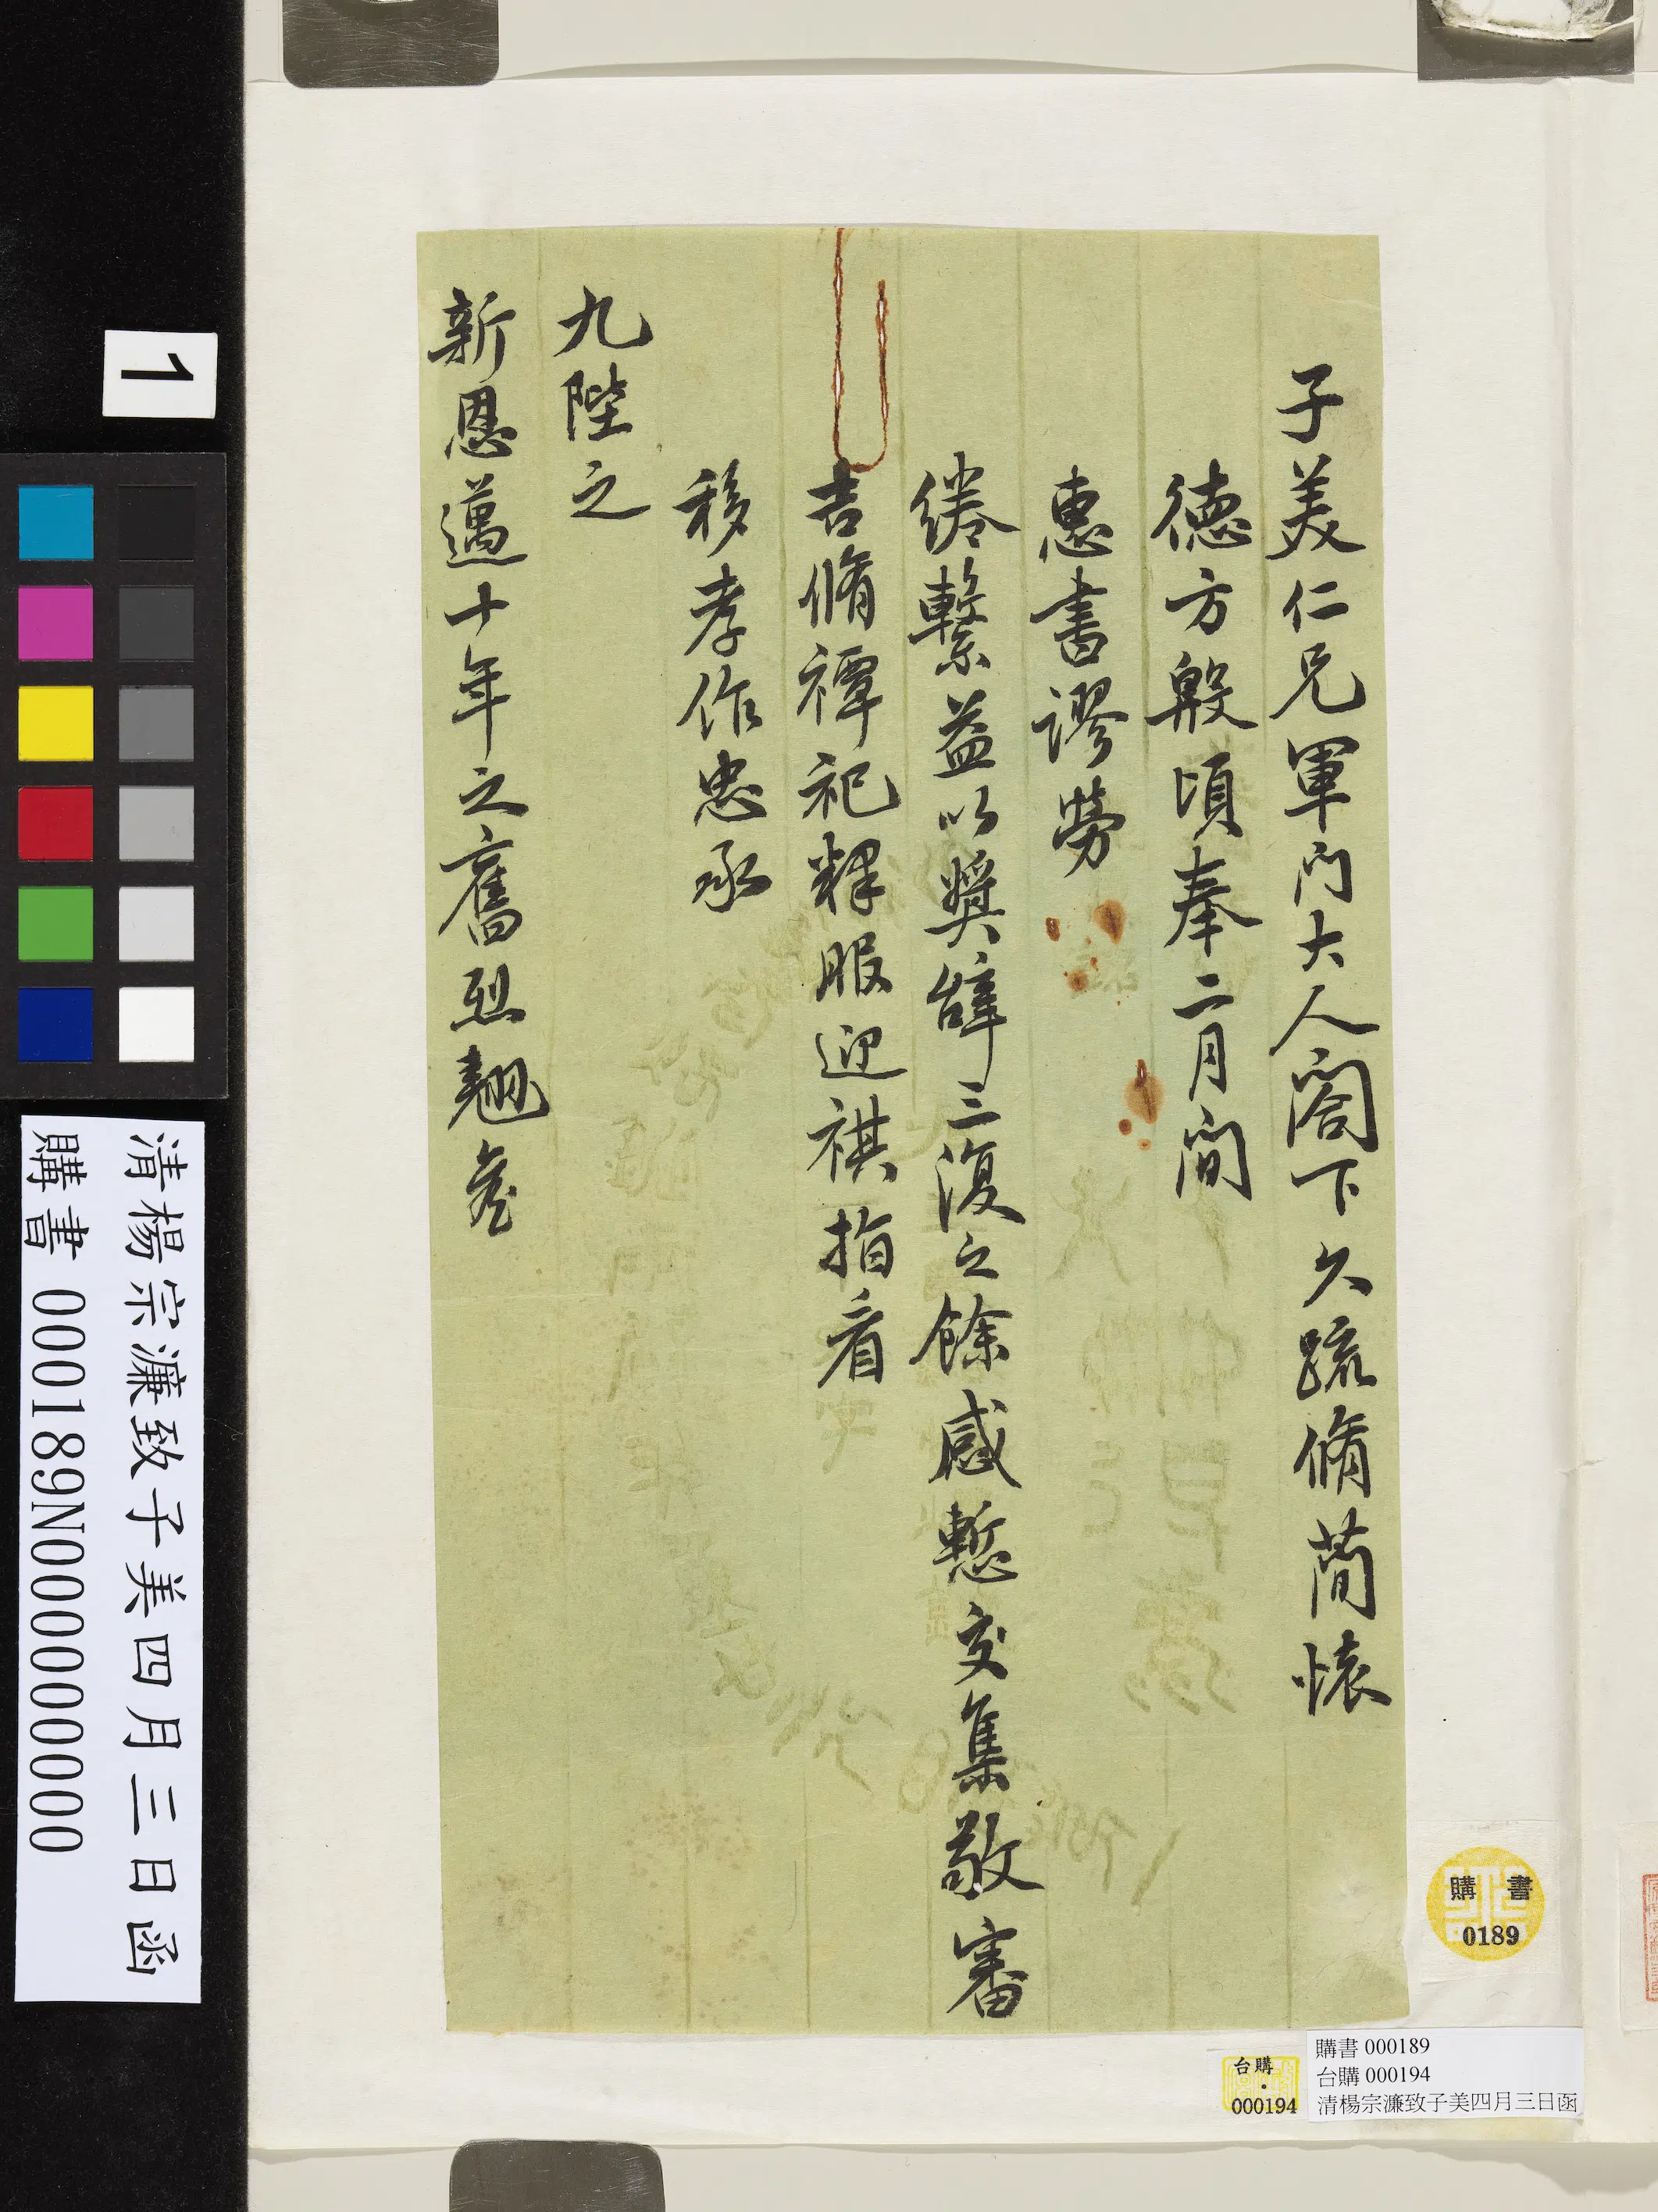 子美仁兄軍門大人閣下久疏脩蕳懷
德方殷頃奉二月間
惠書謬勞
綣繫益以奬辥三復之餘感慙交集敬審
吉脩禫祀釋服迎祺指看
移孝作忠承
九陛之
新恩邁十年之舊烈翹詹
1
清楊宗濂致子美四月三日函
購書 000189N000000000
購書
0189
台購
000194
購書 000189
台購 000194
清楊宗濂致子美四月三日函